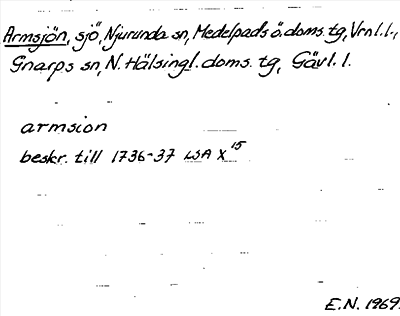 Armsjön, sjö, Njurunda sn, Medelpads ö. doms. tg, Vrnl. l.,
Gnarps sn, N. Hälsingl. doms. tg, Gävl. l.
armsion
beskr. till 1736-37 LSA X 15
E.N. 1969.